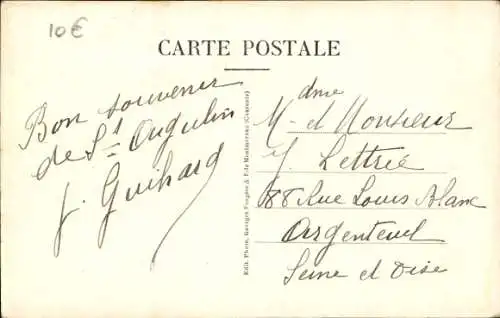 10€
CARTE POSTALE
Bon souvenir
de St Angulin
J. Guihard
Edit. Photo. Georges & Fils Montmoreau (Charente)
Mdme et Monsieur
J. Lettrée
88 Rue Louis Blanc
Argenteuil
Seine et Oise